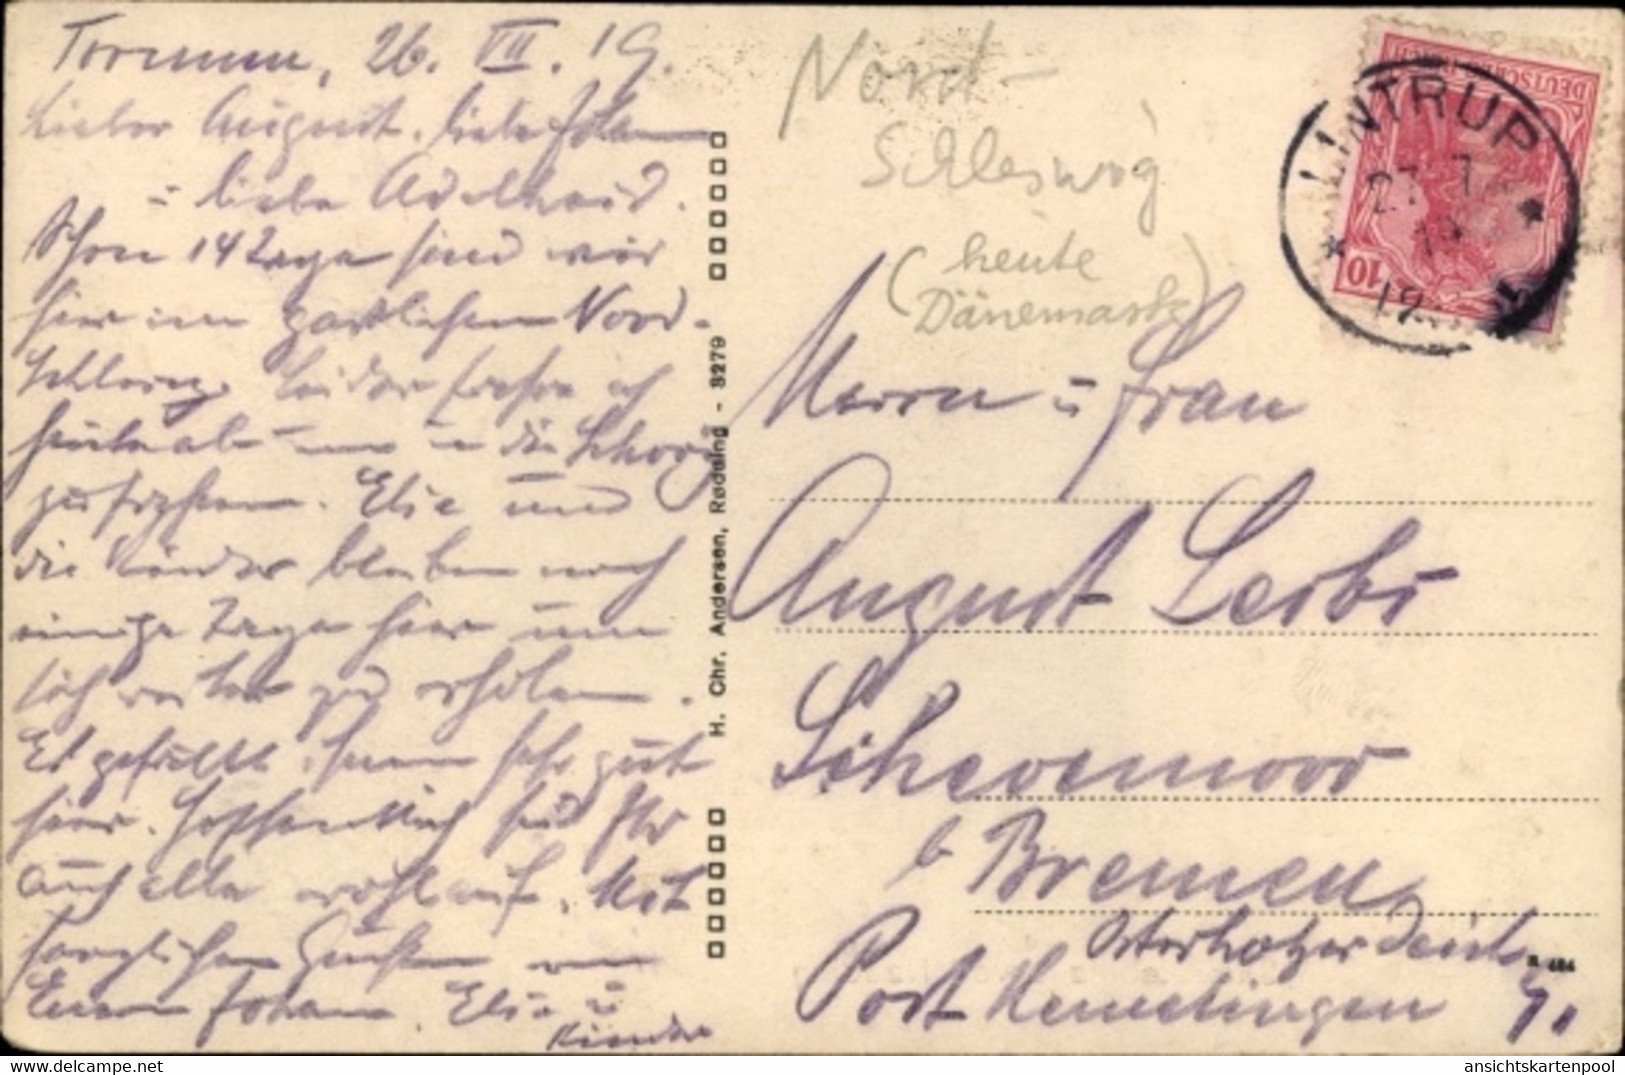 26. VII. 19.
Lieber August, liebe
u liebe Adelheid.
Schon 14 Tage sind wir
hier im gastlichen Nord-
Schleswig. Leider ich
heute ab um in die
Elsa und
die Kinder bleiben noch
einige Tage hier um
sich weiter zu erholen.
Es gefällt ihnen sehr gut
hier. Hoffentlich seid Ihr
auch alle wohlauf. Mit
herzlichen Grüßen von
Eurem Johann, Elsa u
Kinder
H. Chr. Andersen, Rødding - 8279
Nord-
Schleswig
(heute
Dänemark)
DEUTSCHES REICH
10
LINTRUP
27 7
19
Herrn u Frau
August Lerbs
Schevemoor
b Bremen
Osterholzer
Post Hemelingen